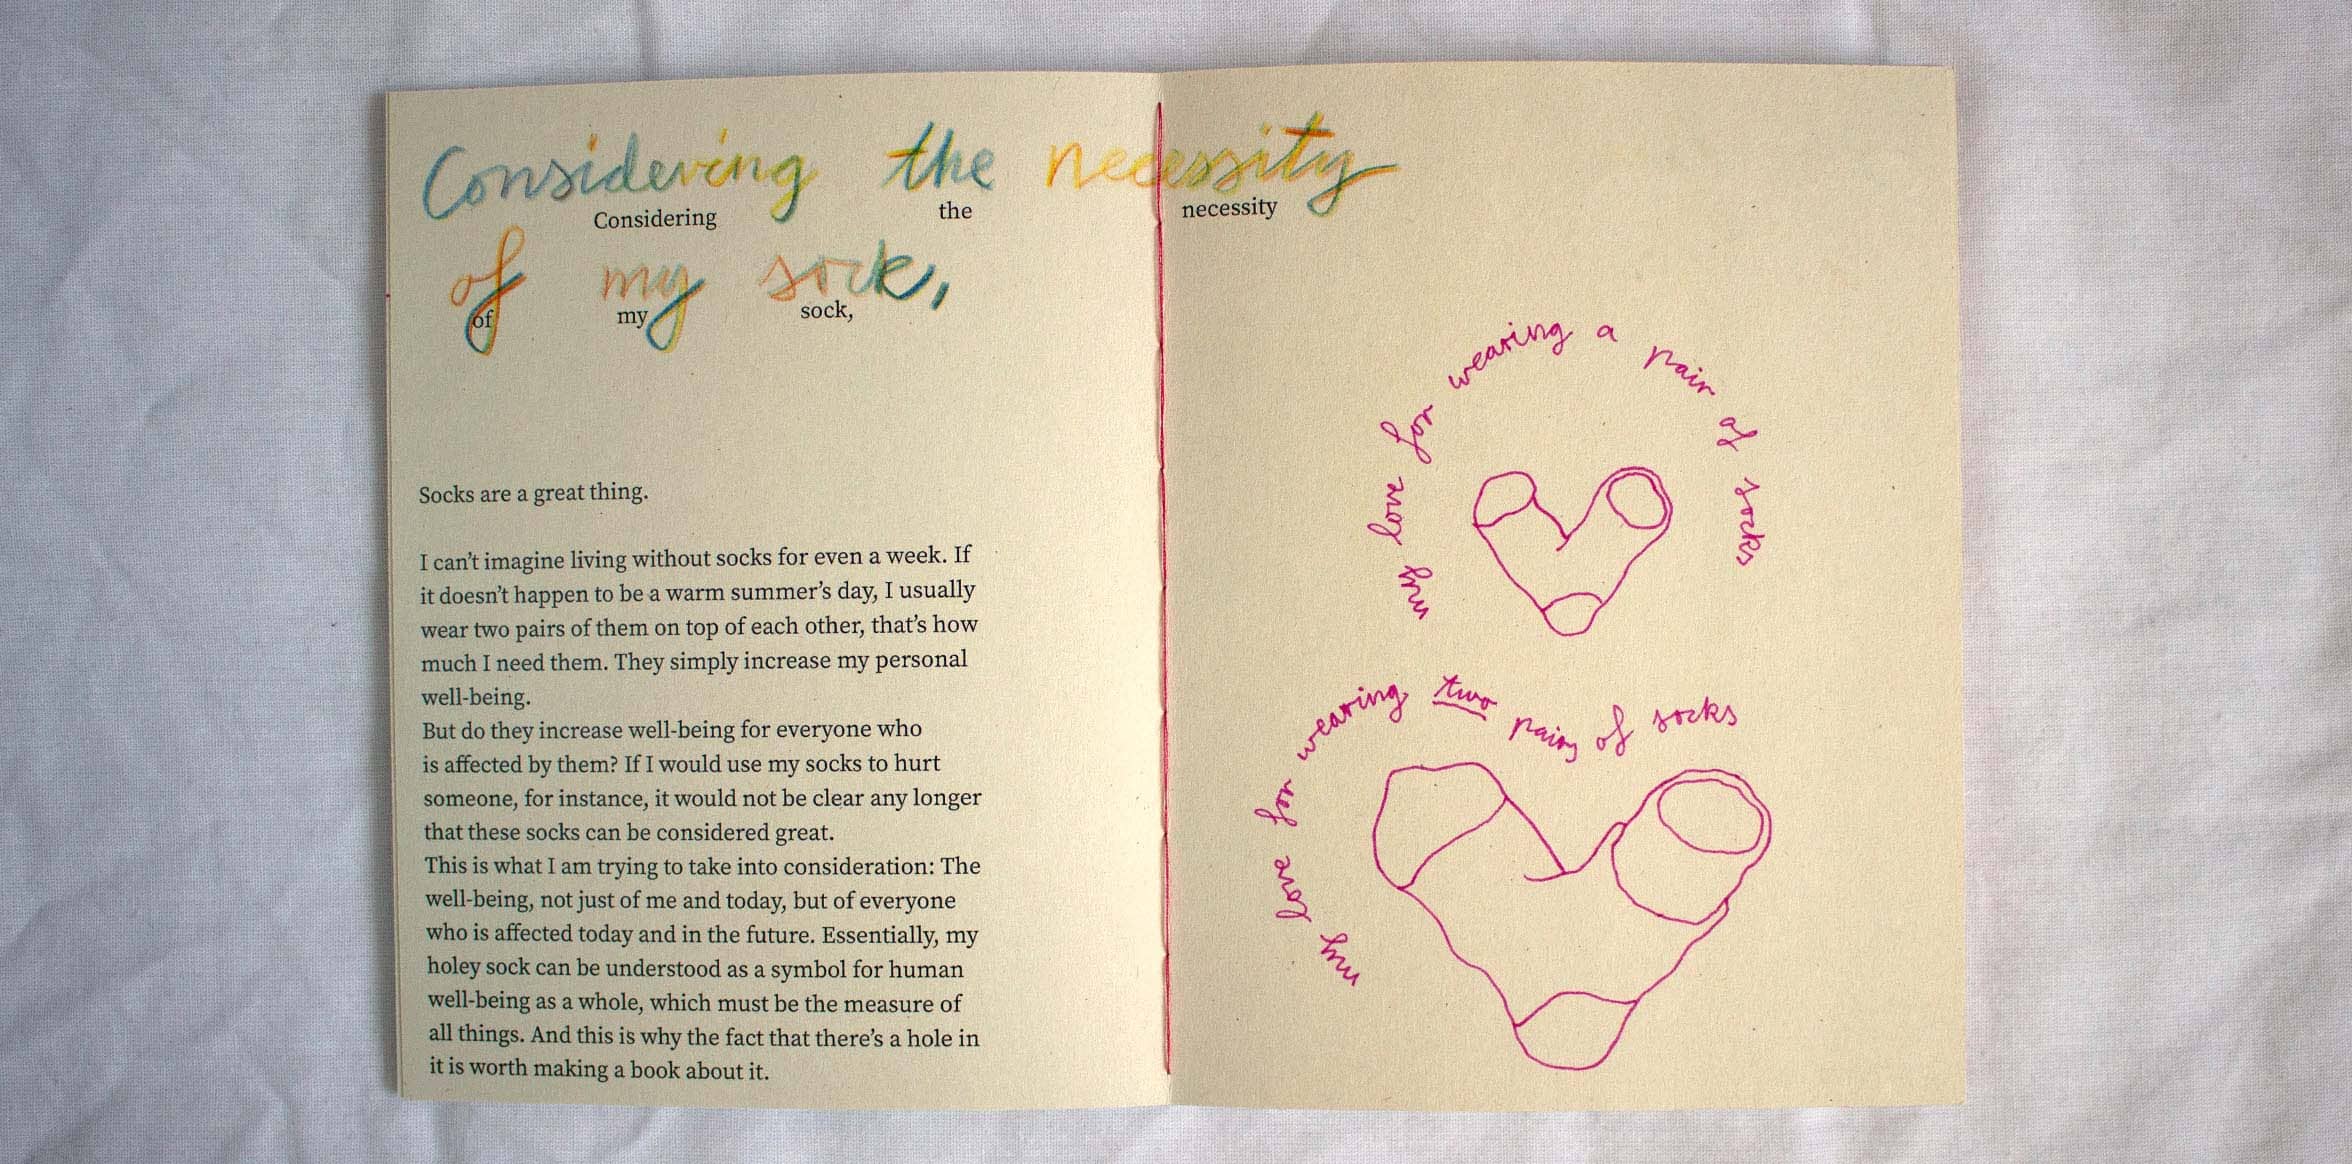 Considering the necessity
Considering the necessity
of my sock,
of my sock,
Socks are a great thing.
I can’t imagine living without socks for even a week. If
it doesn’t happen to be a warm summer’s day, I usually
wear two pairs of them on top of each other, that’s how
much I need them. They simply increase my personal
well-being.
But do they increase well-being for everyone who
is affected by them? If I would use my socks to hurt
someone, for instance, it would not be clear any longer
that these socks can be considered great.
This is what I am trying to take into consideration: The
well-being, not just of me and today, but of everyone
who is affected today and in the future. Essentially, my
holey sock can be understood as a symbol for human
well-being as a whole, which must be the measure of
all things. And this is why the fact that there’s a hole in
it is worth making a book about it.
my love for wearing a pair of socks
my love for wearing two pairs of socks